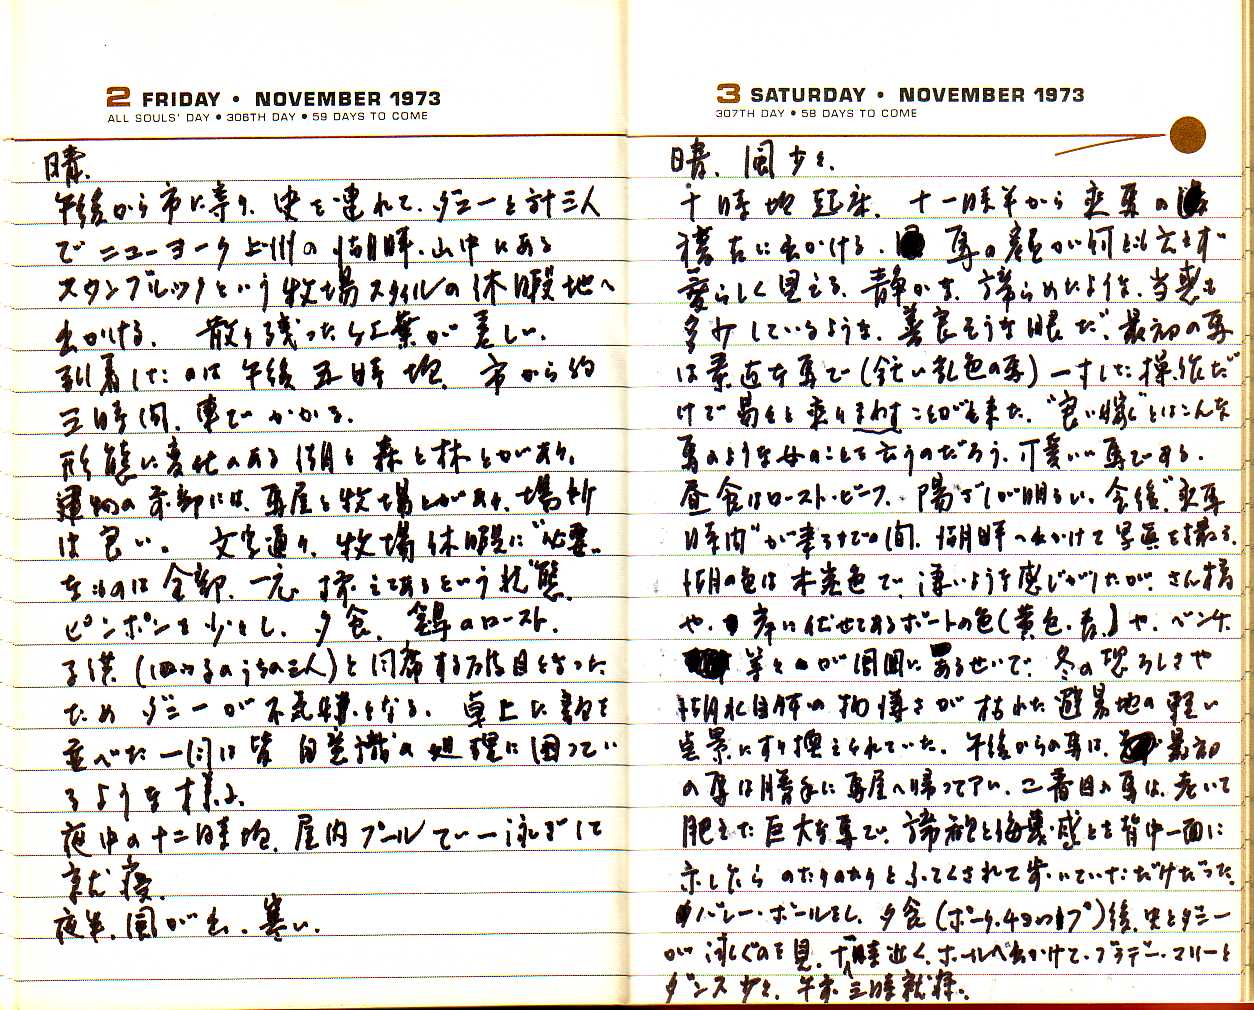 2 FRIDAY • NOVEMBER 1973
ALL SOULS' DAY • 306TH DAY • 59 DAYS TO COME
晴。
午後から市に寄り、史を連れて、ダニーと計三人
でニューヨーク上州の湖畔、山中にある
スタンブルックという牧場スタイルの休暇地へ
出かける。 散り残った紅葉が美しい。
到着したのは午後五時頃、市から約
三時間、車でかかる。
形態に変化のある湖と森と林とがあり、
建物の東部には、馬屋と牧場とがあり、場所
は良い。 文字通り、牧場休暇に"必要"
なものは全部、一応揃えてあるという状態。
ピンポンを少とし、夕食、鶏のロースト。
子供(四つ子のうちの三人)と同席する
ため ダニーが不気嫌となる。 卓上に
並べた一同は皆自意識の処理に困ってい
るような様子。
夜中の十二時頃、屋内プールで一泳ぎして
就寝。
夜半、風が出、寒い。
3 SATURDAY • NOVEMBER 1973
307TH DAY • 58 DAYS TO COME
晴、風少々。
十時頃起床、十一時半から乗馬の
稽古に出かける。 馬の顔が何とも云えず
愛らしく見える、静かな、諦らめたような、当惑も
多少しているような、善良そうな眼だ。最初の馬
は素直な馬で( 乳色の馬)一寸した操作だ
けで易々と乗りまわすことが出来た。"良い嫁"とはこんな
馬のような女のことを云うのだろう、可愛いい馬である。
昼食はロースト・ビーフ、陽ざしが明るい。食後"乗馬
時間"が来るまでの間、湖畔へ出かけて写真を撮る。
湖の色は 色で、凄いような感じがしたが、さん橋
や、岸に伏せてあるボートの色(黄色・青)や、ベンチ、
等々が周囲にあるせいで、冬の恐ろしさや
湖水自体の物凄さが枯れた避暑地の軽い
点景にすり換えられていた。午後からの馬は、最初
の馬は勝手に馬屋へ帰って 、二番目の馬は、老いて
肥えた巨大な馬で、諦観と侮蔑感とを背中一面に
示しながら のたりのたりとふてくされて歩いていただけだった。
バレー・ボールをし、夕食(ポーク・チョップ)後、史とダニー
が泳ぐのを見、十時近く、ホールへ出かけて、ブラデー・マリーと
ダンス少々、午前三時就寝。